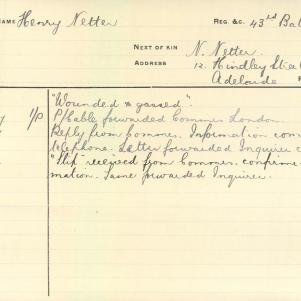 NAME Henry Netter REG. &C. 43rd Bat
NEXT OF KIN N. Netter.
ADDRESS 12. Hindley Stree
Adelaide
"Wounded & gassed".
1/0 P/Cable forwarded Commer. London.
Reply from Commer. Information com
telephone. Letter forwarded Inquirer c
"Slip" received from Commer. confirm
mation. Same forwarded Inquirer.